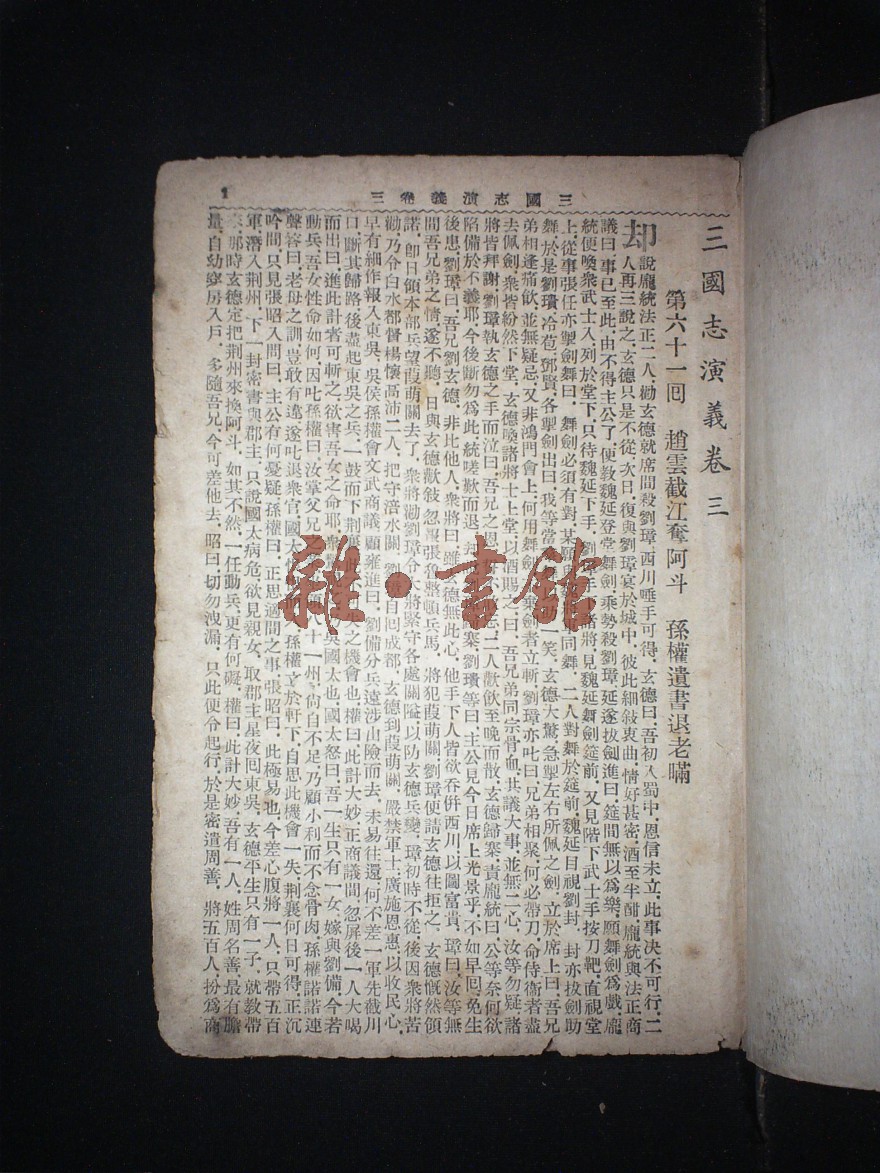 三國志演義卷三
1
三國志演義卷三
第六十一回 趙雲截江奪阿斗 孫權遺書退老瞞
却說龐統法正二人,勸玄德就席間殺劉璋,西川唾手可得,玄德曰,吾初入蜀中,恩信未立,此事决不可行,二
人再三說之,玄德只是不從,次日,復與劉璋宴於城中,彼此細敍衷曲,情好甚密,酒至半酣,龐統與法正商
議曰,事已至此,由不得主公了,便教魏延登堂舞劍,乘勢殺劉璋,延遂拔劍進曰,筵間無以爲樂,願舞劍爲戲,龐
統便喚衆武士入,列於堂下,只待魏延下手,劉手下諸將,見魏延舞劍筵前,又見階下武士手按刀靶,直視堂
上,從事張任亦掣劍舞曰,舞劍必須有對,某願與將軍同舞,二人對舞於筵前,魏延目視劉封,封亦拔劍助
舞,於是劉璝冷苞鄧賢,各掣劍出曰,我等當助一笑,玄德大驚,急掣左右所佩之劍,立於席上曰,吾兄
弟相逢痛飲,並無疑忌,又非鴻門會上,何用舞劍,不棄劍者立斬,劉璋亦叱曰,兄弟相聚,何必帶刀,命侍衛者盡
去佩劍,衆皆紛然下堂,玄德喚諸將士上堂,以酒賜之曰,吾兄弟同宗骨血,共議大事,並無二心,汝等勿疑,諸
將皆拜謝,劉璋執玄德之手而泣曰,吾兄之恩,誓不忘,二人歡飲至晚而散,玄德歸寨,責龐統曰,公等奈何欲
陷備於不義耶,今後斷勿爲此,統嗟歎而退,却寨,劉璝等曰,主公見今日席上光景乎,不如早回,免生
後患,劉璋曰,吾兄劉玄德,非比他人,衆將曰,雖玄德無此心,他手下人皆欲吞併西川,以圖富貴,璋曰,汝等無
間吾兄弟之情,遂不聽,日與玄德歡敍,忽報張魯整頓兵馬,將犯葭萌關,劉璋便請玄德往拒之,玄德慨然領
諾,卽日領本部兵望葭萌關去了,衆將勸劉璋令將緊守各處關隘,以防玄德兵變,璋初時不從,後因衆將苦
勸,乃令白水都督楊懷高沛二人,把守涪水關,劉璋自回成都,玄德到葭萌關,嚴禁軍士,廣施恩惠,以收民心,
早有細作報入東吳,吳侯孫權會文武商議,顧雍進曰,劉備分兵遠涉山險而去,未易往還,何不差一軍先截川
口,斷其歸路,後盡起東吳之兵,一鼓而下荆襄,此不可失之機會也,權曰,此計大妙,正商議間,忽屏後一人大喝
而出曰,進此計者可斬之,欲害吾女之命耶,衆驚視之,乃吳國太也,國太怒曰,吾一生只有一女,嫁與劉備,今若
動兵,吾女性命如何,因叱孫權曰,汝掌父兄之業,坐領八十一州,尙自不足,乃顧小利而不念骨肉,孫權諾諾連
聲,答曰,老母之訓,豈敢有違,遂叱退衆官,國太恨恨而入,孫權立於軒下,自思此機會一失,荆襄何日可得,正沉
吟間,只見張昭入問曰,主公有何憂疑,孫權曰,正思適間之事,張昭曰,此極易也,今差心腹將一人,只帶五百
軍,潛入荆州,下一封密書與郡主,只說國太病危,欲見親女,取郡主星夜回東吳,玄德平生只有一子,就教帶
來,那時玄德定把荆州來換阿斗,如其不然,一任動兵,更有何礙,權曰,此計大妙,吾有一人,姓周名善,最有膽
量,自幼穿房入戶,多隨吾兄,今可差他去,昭曰,切勿洩漏,只此便令起行,於是密遣周善,將五百人,扮爲商
雜·書館